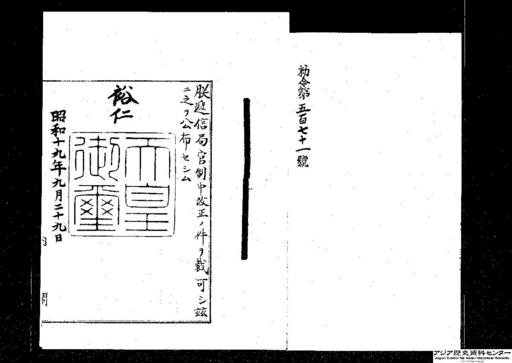 勅令第五百七十一號
朕遞信局官制中改正ノ件ヲ裁可シ玆
ニ之ヲ公布セシム
裕仁
天皇御璽
昭和十九年九月二十九日
内
閣
アジア歴史資料センター
Japan Center for Asian Historical Records